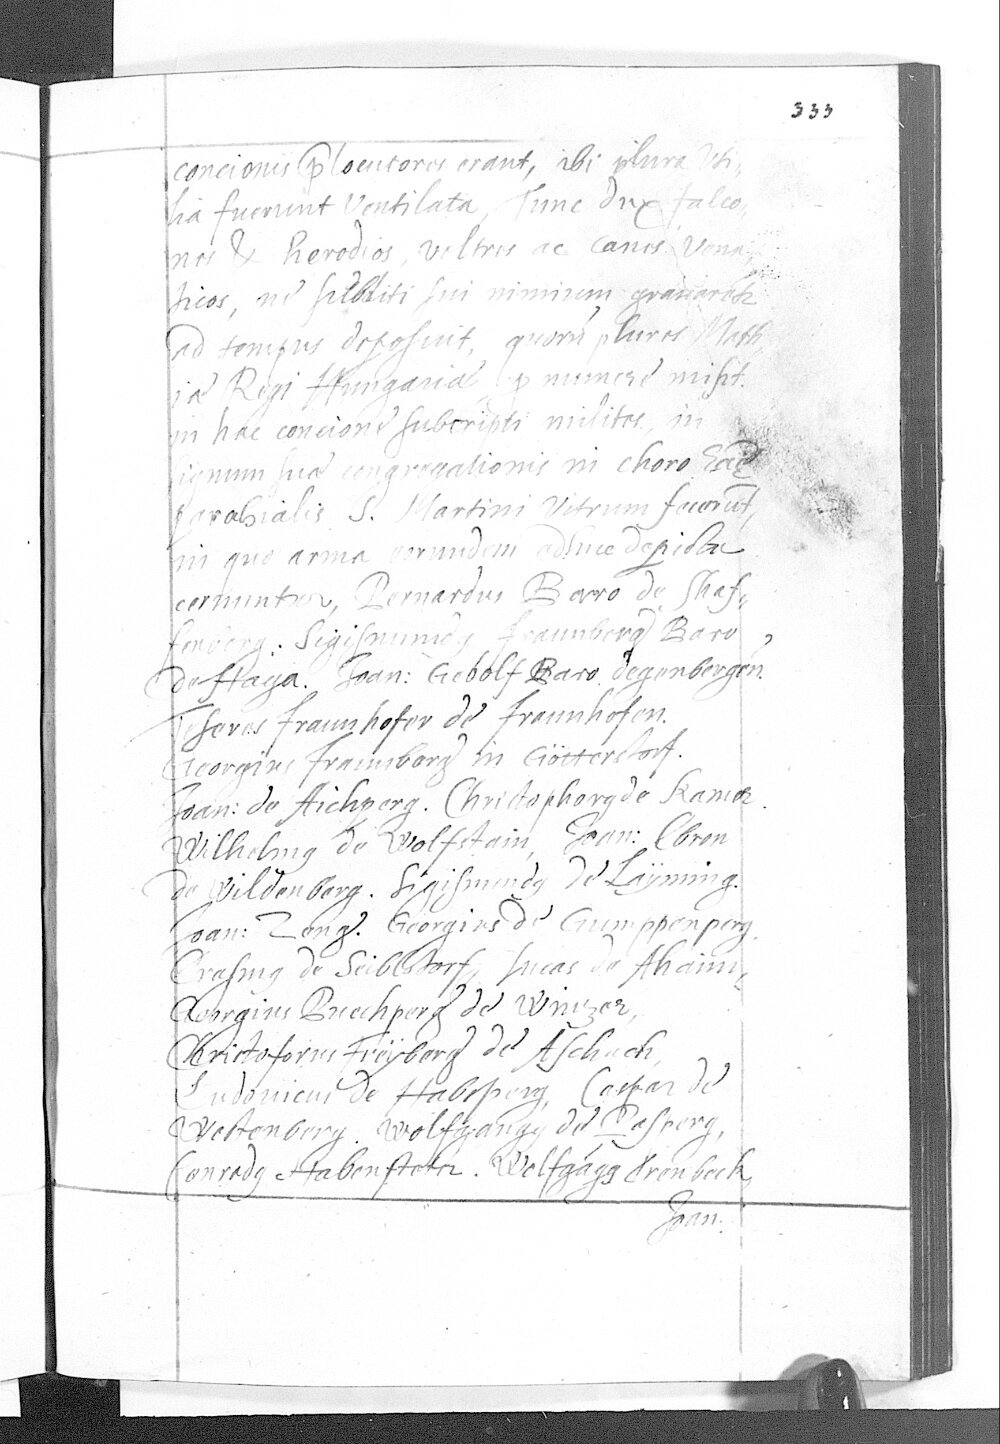 333
concionis plocutores erant, ibi plura Uti,
lia fuerunt Ventilata, Tunc dux falco,
nes & herodios, veltres ac canes Vena,
ticos, ne subditi sui nimium gravarētr
ad tempus deposuit, quorū plures Math,
iæ Regi Hungariæ p munere misit.
in hac concione subcripti milites, in
signum suæ congregationis in choro Eccæ
parohialis S. Martini Vitrum fecerūt,
in quo arma eorundem adhuc depicta
cernuntur, Bernardus Barro de Shaf,
fenberg. Sigismundg Fraunberg Baro
de Haga. Joan: Gebolf Baro degenbergen.
Teseres Fraunhofer de Fraunhofen.
Georgius Fraunberg in Göttersdorf.
Joan: de Aichperg. Christophorg de Kamer.
Wilhelmg de Wolfstain, Joan: Ebron
de Wildenberg. Sigismundg de Laÿming.
Joan: Zeng. Georgius de Gumppenperg.
Erasmg de Seiblstorf, Lucas de Ahaim,
Georgius Puechperg de Winzer,
Christoforus Freÿberg de Aschach,
Ludovicus de Habsperg, Caspar de
Westenberg. Wolfgangg de Pasperg,
Conradg Habensteter. Wolfgāgg Trenbeck,
Joan: